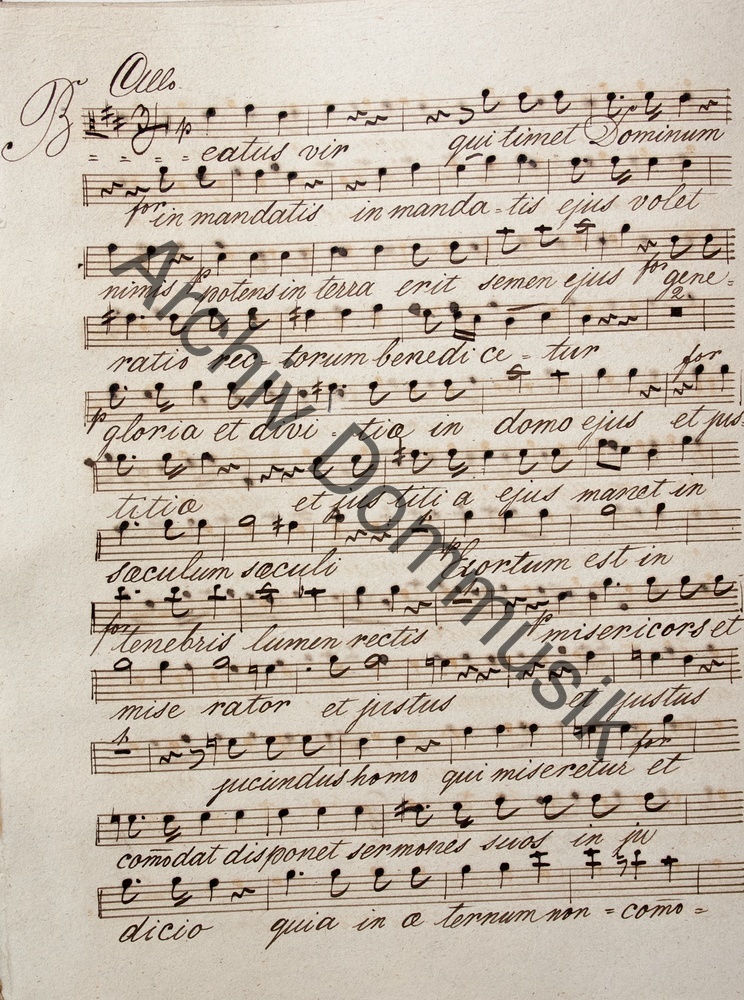 Allo
p
Beatus vir qui timet Dominum
for in mandatis in manda - tis ejus volet
nimis p potens in terra erit semen ejus for gene-
2
ratio rec - torum benedi ce - tur for
p gloria et divi - tiæ in domo ejus et jus-
titiæ et justiti a ejus manet in
sæculum sæculi Exortum est in
for tenebris lumen rectis p misericors et
mise rator et justus et justus
jucundus homo qui miseretur for et
com̄odat disponet sermones suos in ju
dicio quia in æ ternum non = como =
Archiv Dommusik